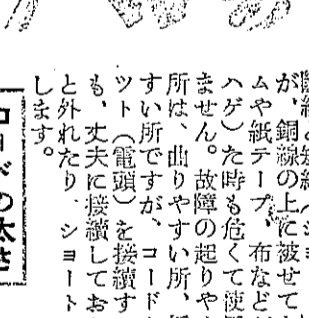 が、銅線の上に被せて
ムや紙テープ、布など
ハゲ）た時も危くて使
ません。故障の起りや
所は、曲りやすい所、
すい所ですが、コード
ツト（電頭）を接續す
も、丈夫に接續してお
と外れたり、ショート
します。
コードの太さ